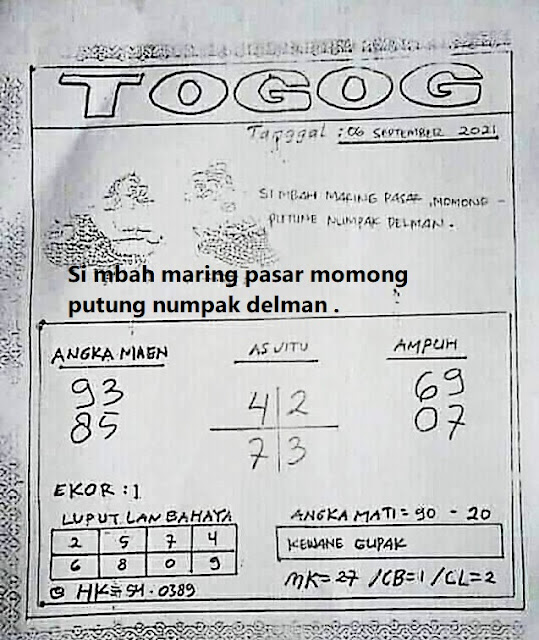 TOGOG
Tanggal : 06 SEPTEMBER 2021
SI MBAH MARING PASAR, MOMONG -
PUTUNE NUMPAK DELMAN.
Si mbah maring pasar momong
putung numpak delman .
ANGKA MAEN
93
85
AS VITU
4 2
7 3
AMPUH
69
07
EKOR : 1
LUPUT LAN BAHAYA
2 5 7 4
6 8 0 9
HK = 54 . 0389
ANGKA MATI = 90 - 20
KEWANE GUPAK
MK= 27 /CB=1 /CL=2